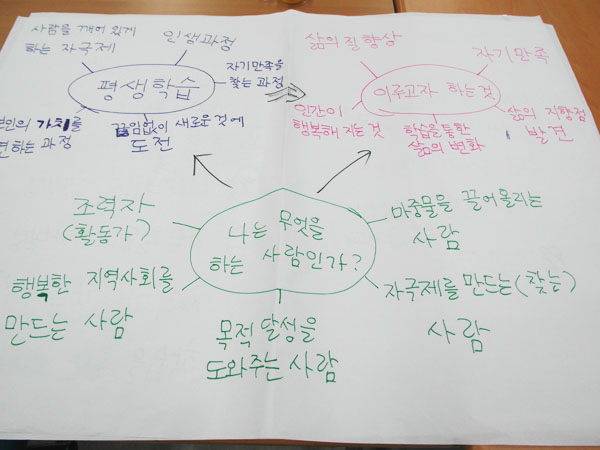 사람을 깨어 있게
하는 자극제
인생과정
평생학습
자기만족을
찾는 과정
본인의 가치를
하는 과정
끊임없이 새로운 것에
도전
삶의 질 향상
자기만족
이루고자 하는 것
인간이
행복해 지는 것
학습을 통한
삶의 변화
삶의 지향점
발견
나는 무엇을
하는 사람인가?
조력자
(활동가)
행복한 지역사회를
만드는 사람
목적 달성을
도와주는 사람
마중물을 끌어올리는
사람
자극제를 만드는(찾는)
사람